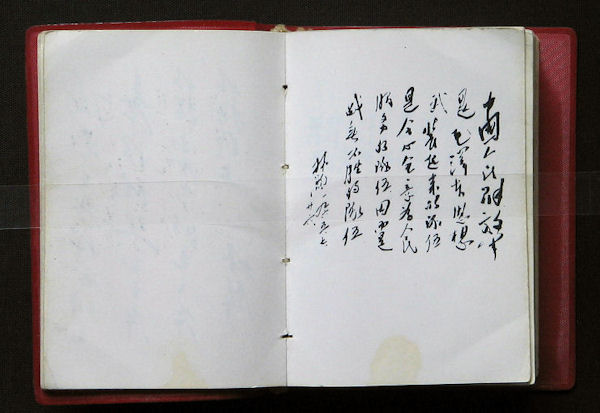 中國人民解放军
是毛澤东思想
武裝起来的队伍
是全心全意为人民
服务的队伍因而是
战无不胜的队伍
林彪